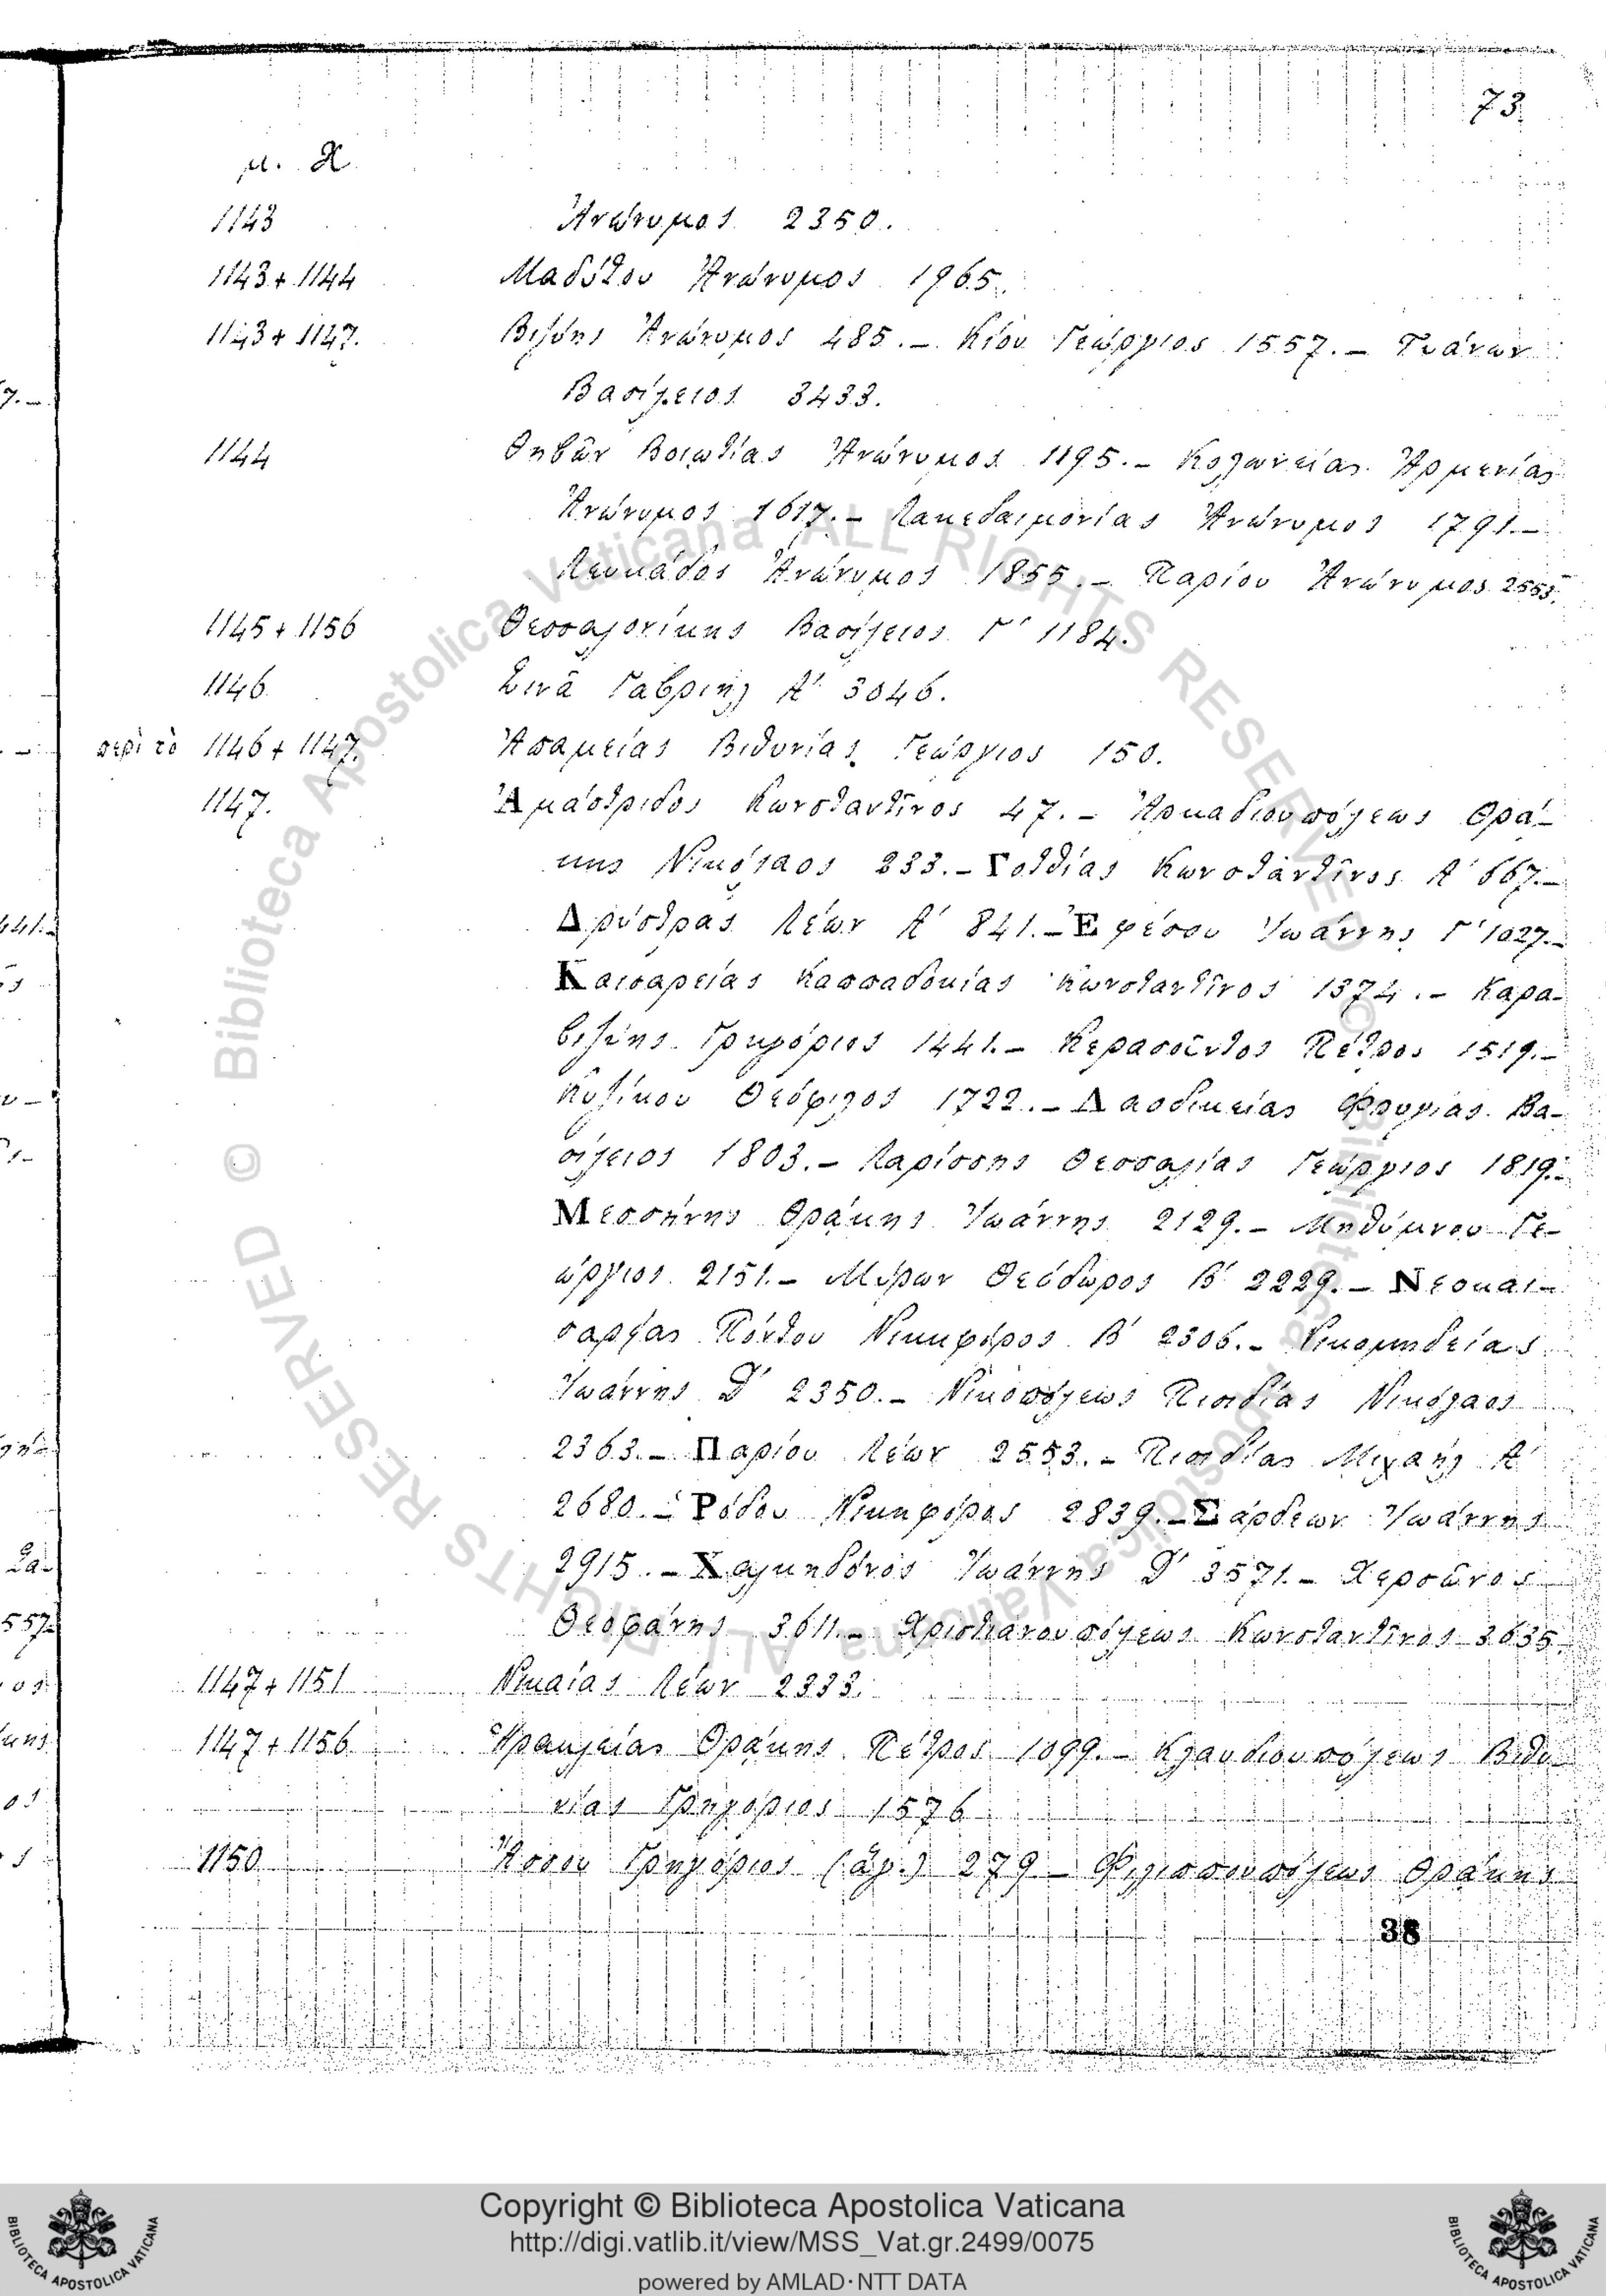 73
μ. Χ
1143 Ἀνώνυμος 2350.
1143 + 1144 Μαδύτου Ἀνώνυμος 1965.
1143 + 1147. Βιζύης Ἀνώνυμος 485. – Κίου Γεώργιος 1557. – Τυάνων
Βασίλειος 3433.
1144 Θηβῶν Βοιωτίας Ἀνώνυμος 1195. – Κολωνείας Ἀρμενίας
Ἀνώνυμος 1617. – Λακεδαιμονίας Ἀνώνυμος 1791. –
Λευκάδος Ἀνώνυμος 1855. – Παρίου Ἀνώνυμος 2553.
1145 + 1156 Θεσσαλονίκης Βασίλειος Γ' 1184.
1146 Σινᾶ Γαβριήλ Α' 3046.
περὶ τὸ 1146 + 1147. Ἀπαμείας Βιθυνίας Γεώργιος 150.
1147. Ἀμάστριδος Κωνσταντῖνος 47. – Ἀρκαδιουπόλεως Θρά–
κης Νικόλαος 233. – Γοτθίας Κωνσταντῖνος Α' 667. –
Δρύστρας Λέων Α' 841. – Ἐφέσου Ἰωάννης Γ' 1027. –
Καισαρείας Καππαδοκίας Κωνσταντῖνος 1374. – Καρα–
βιζύης Γρηγόριος 1441. – Κερασοῦντος Πέτρος 1519. –
Κυζίκου Θεόφιλος 1722. – Λαοδικείας Φρυγίας Βα–
σίλειος 1803. – Λαρίσσης Θεσσαλίας Γεώργιος 1819. –
Μεσσήνης Θράκης Ἰωάννης 2129. – Μηθύμνου Γε–
ώργιος 2151. – Μύρων Θεόδωρος Β' 2229. – Νεοκαι–
σαρίας Πόντου Νικηφόρος Β' 2306. – Νικομηδείας
Ἰωάννης Δ' 2350. – Νικοπόλεως Πισιδίας Νικόλαος
2363. – Παρίου Λέων 2553. – Πισιδίας Μιχαήλ Α'
2680. – Ῥόδου Νικηφόρος 2839. – Σάρδεων Ἰωάννης
2915. – Χαλκηδόνος Ἰωάννης Δ' 3571. – Χερσῶνος
Θεοφάνης 3611. – Χριστιανουπόλεως Κωνσταντῖνος 3635.
1147 + 1151 Νικαίας Λέων 2333.
1147 + 1156 Ἡρακλείας Θράκης Πέτρος 1099. – Κλαυδιουπόλεως Βιθυ–
νίας Γρηγόριος 1576
1150 Ἄσσου Γρηγόριος (ἅγ.) 279 – Φιλιππουπόλεως Θράκης
38
© Biblioteca Apostolica Vaticana ALL RIGHTS RESERVED
© Biblioteca Apostolica Vaticana ALL RIGHTS RESERVED
Copyright © Biblioteca Apostolica Vaticana
http://digi.vatlib.it/view/MSS_Vat.gr.2499/0075
powered by AMLAD·NTT DATA
BIBLIOTECA APOSTOLICA VATICANA
BIBLIOTECA APOSTOLICA VATICANA